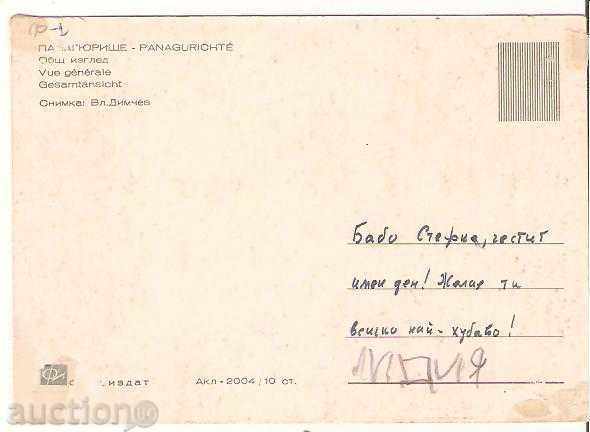 ПА ГЮРИЩЕ - PANAGURICHTÉ
Общ изглед
Vue générale
Gesamtansicht
Снимка: Вл.Димчев
Бабо Стефке, честит
имен ден! Желая ти
всичко най-хубаво!
издат
Акл-2004/10 ст.
auction